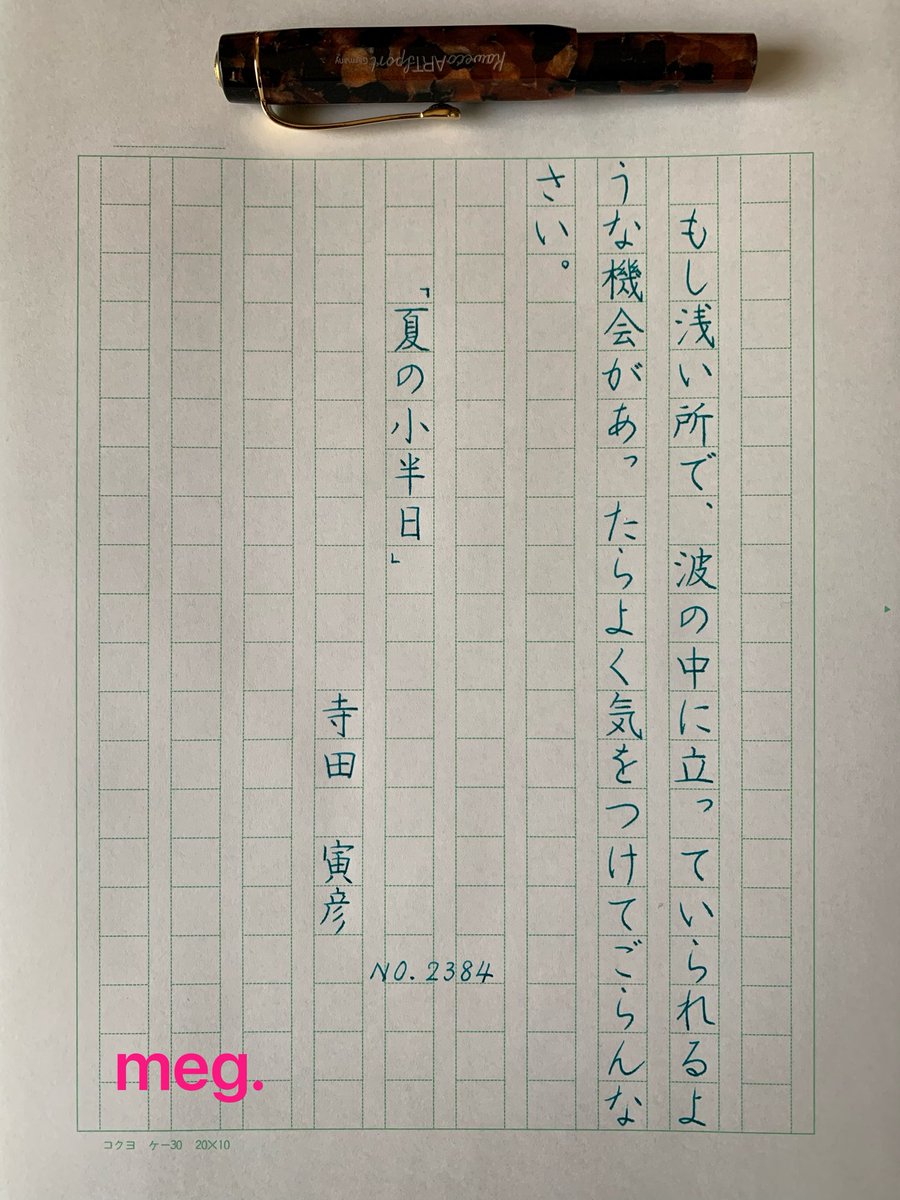 Kaweco ART Sport Germany
もし浅い所で、波の中に立っていられるよ
うな機会があったらよく気をつけてごらんな
さい。
「夏の小半日」
寺田 寅彦
NO.2384
meg.
コクヨ ケー30 20×10